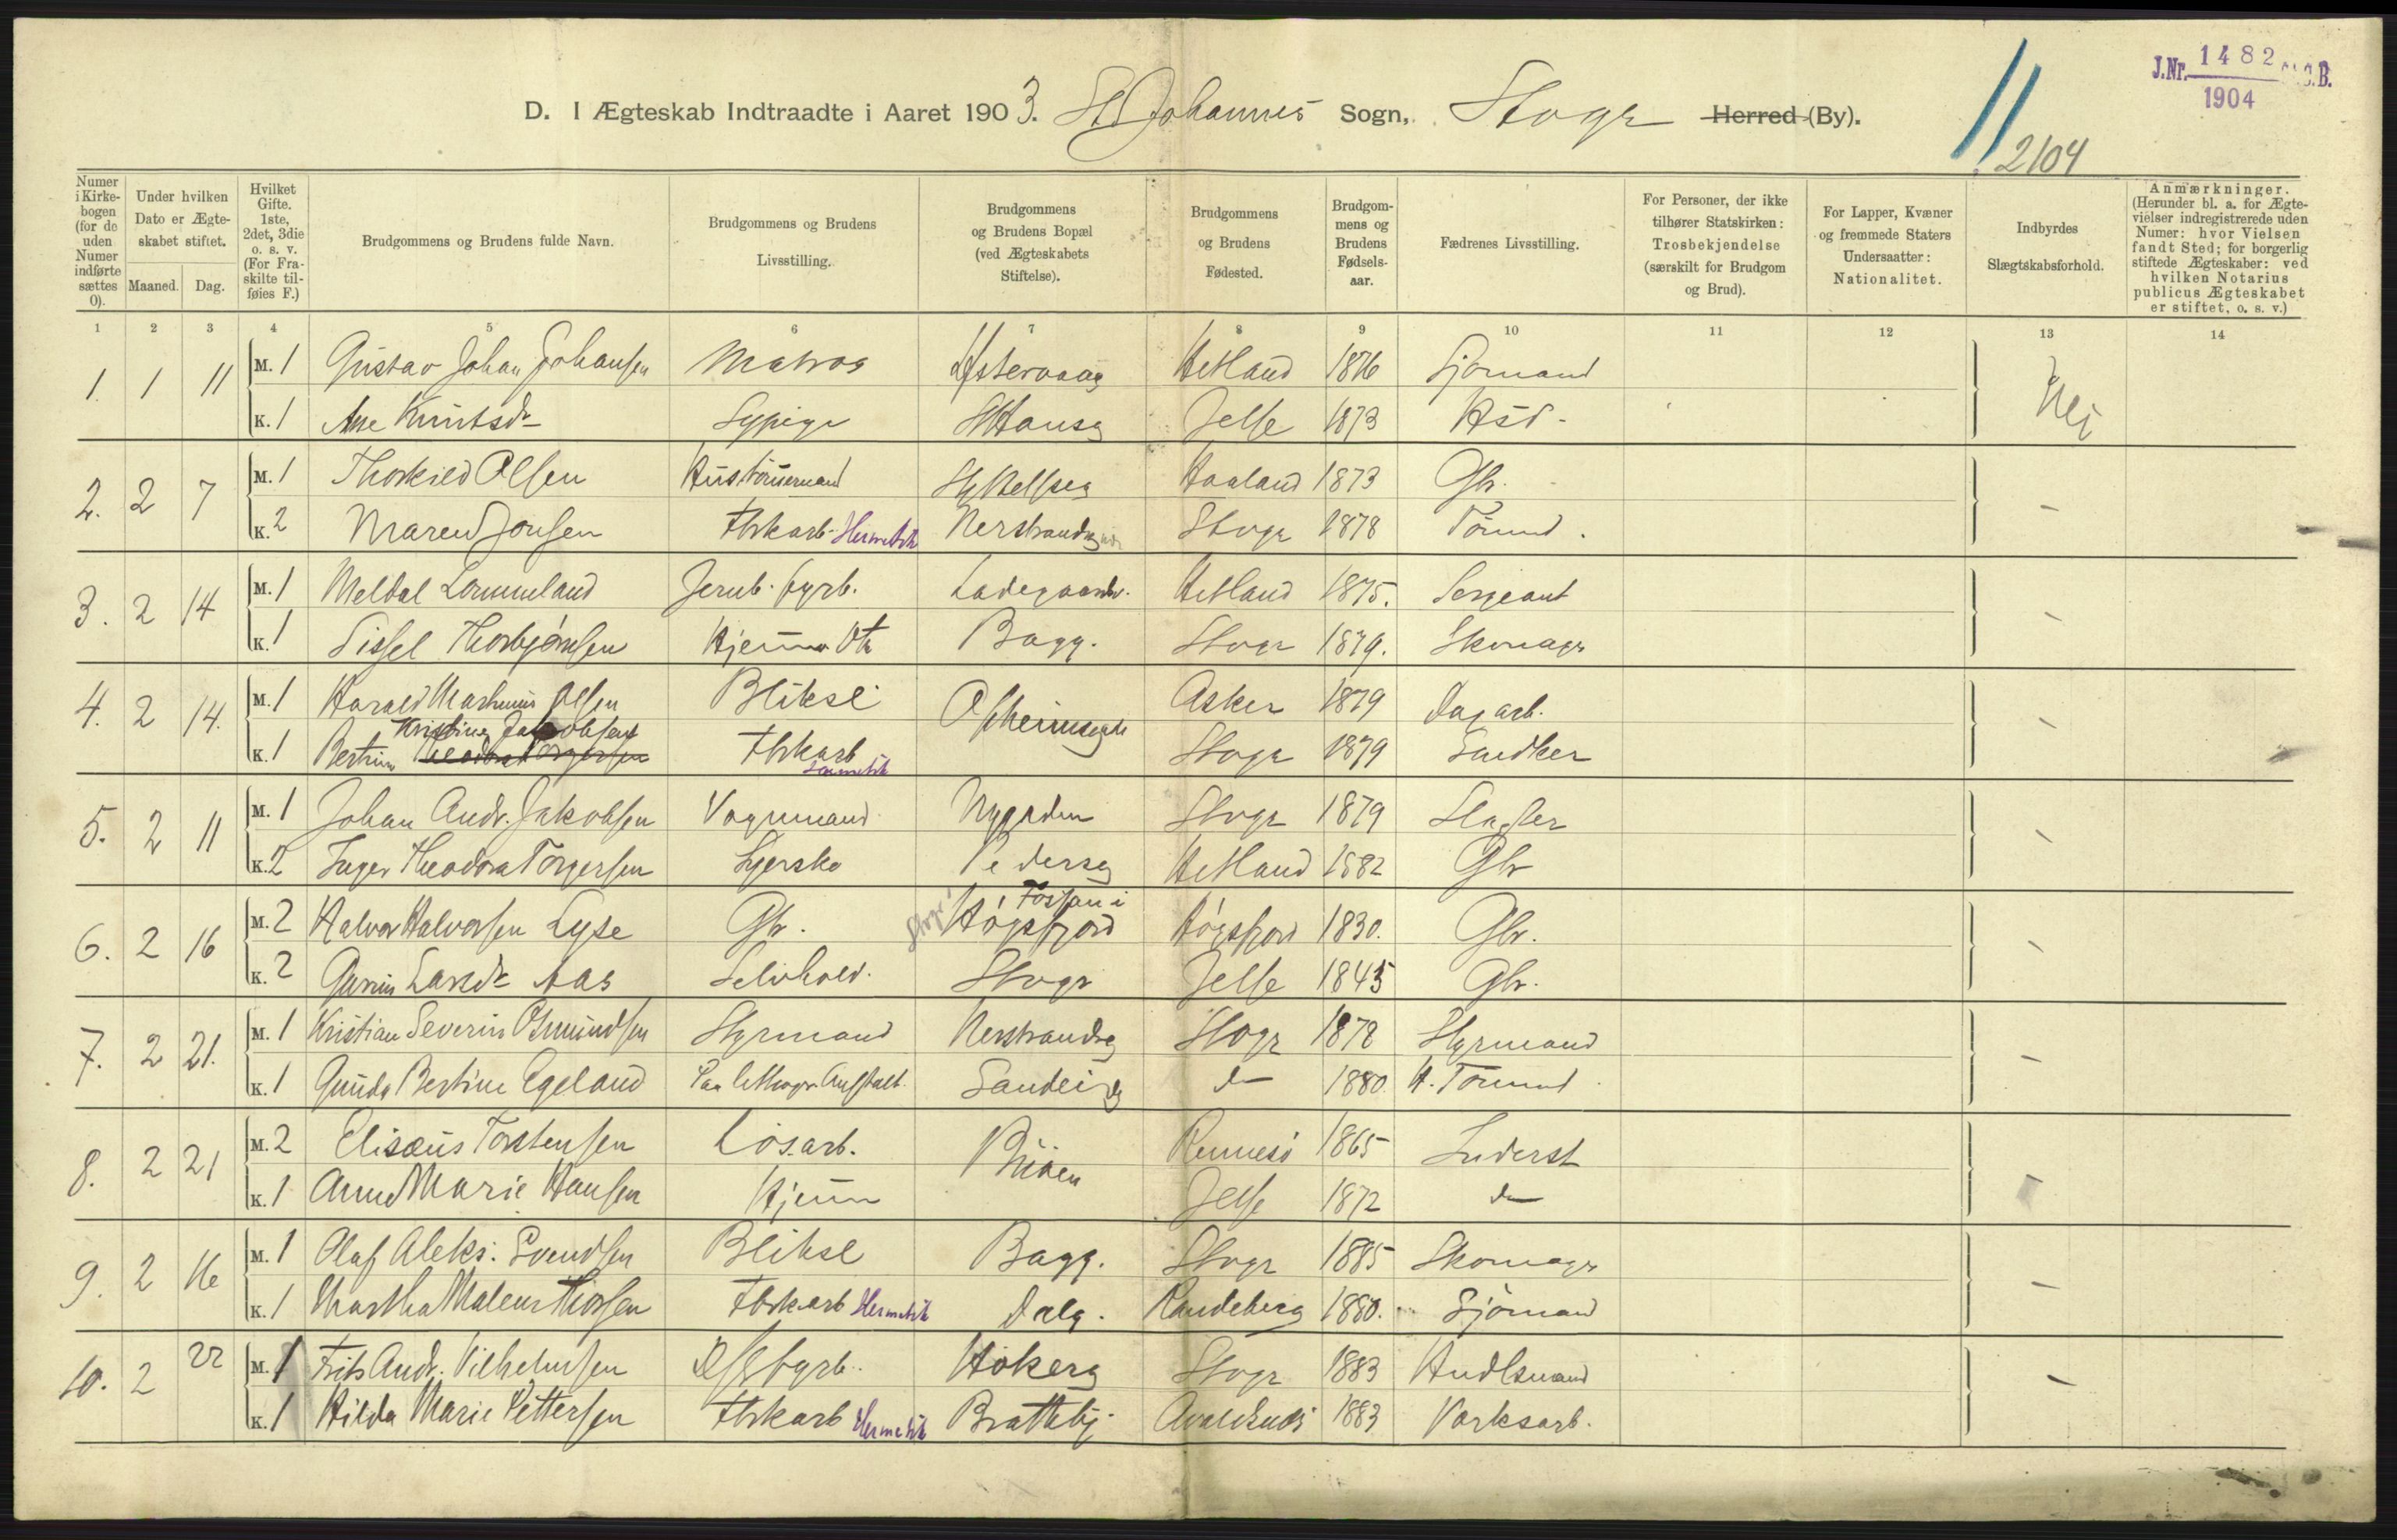 J.Nr. 1482 C.B.
1904
D. I Ægteskab Indtraadte i Aaret 1903. St Johannes Sogn, Stvgr Herred (By).
2104
Numer i Kirkebogen (for de uden Numer indførte sættes 0).
Under hvilken Dato er Ægteskabet stiftet.
Maaned. Dag.
Hvilket Gifte. 1ste, 2det, 3die o. s. v. (For Fraskilte tilføies F.)
Brudgommens og Brudens fulde Navn.
Brudgommens og Brudens Livsstilling.
Brudgommens og Brudens Bopæl (ved Ægteskabets Stiftelse).
Brudgommens og Brudens Fødested.
Brudgommens og Brudens Fødselsaar.
Fædrenes Livsstilling.
For Personer, der ikke tilhører Statskirken: Trosbekjendelse (særskilt for Brudgom og Brud).
For Lapper, Kvæner og fremmede Staters Undersaatter: Nationalitet.
Indbyrdes Slægtskabsforhold.
Anmærkninger. (Herunder bl. a. for Ægtevielser indregistrerede uden Numer: hvor Vielsen fandt Sted; for borgerlig stiftede Ægteskaber: ved hvilken Notarius publicus Ægteskabet er stiftet, o. s. v.)
1 2 3 4 5 6 7 8 9 10 11 12 13 14
1. 1 11 M. 1 Gustav Johan Johansen Matros Østervaag Hetland 1876 Sjømand Nei
K. 1 Ane Knutsdr Sypige StHansg Jelse 1873 Hsd.
2. 2 7 M. 1 Thorkild Olsen Hustømermand Haaland 1873 Gbr. -
K. 2 Maren Jonsen Fbrkarb. Hermetik Nerstrandsg Stvgr 1878 Tømmd.
3. 2 14 M. 1 Meldal Lommeland Jernb. fyrb. Ladegaardsv. Hetland 1875. Sergeant -
K. 1 Sissel Thorbjørnsen Hjemme Dtr Bagg. Stvgr 1879. Skomagr
4. 2 14. M. 1 Harald Marthinius Olsen Bliksl Opheimsgade Asker 1879 Dagarb. -
Kristine Jakobsen
K. 1 Bertine Theodora Torgersen Fbrkarb Hermetik Stvgr 1879 Snedker
5. 2 11 M. 1 Johan Andr. Jakobsen Vognmand Nygaden Stvgr 1879 Slagter -
K. 2 Inger Theodora Torgersen Syerske Pedersg Hetland 1882 Gbr
6. 2 16 M. 2 Halvor Halvorsen Lyse Gbr. Stvgr Fossan i Høgsfjord Høgsfjord 1830. Gbr. -
K. 2 Gurine Larsdr Aas Selvhold. Stvgr Jelse 1845 Gbr.
7. 2 21. M. 1 Kristian Severin Osmundsen Styrmand Nerstrandsg Stvgr 1878 Styrmand -
K. 1 Gunda Bertine Egeland Paa Lithogr. Anstalt. Sandeidg do 1880 H. Tømmd.
8. 2 21 M. 2 Elisæus Torstensen Løsarb. Rennesø 1865 Inderst -
K. 1 Anne Marie Hansen Hjem Jelse 1872 do
9. 2 16 M. 1 Olaf Aleks. Svendsen Bliksl Bagg. Stvgr 1885 Skomagr -
K. 1 Martha Malene Thorsen Fbrkarb Hermetik Dalg. Randeberg 1880. Sjömand
10. 2 22 M. 1 Frits Andr. Vilhelmsen fyrb. Høkerg Stvgr 1883 Hndlsmand -
K. 1 Hilda Marie Pettersen Fbrkarb Hermetik Brattebj. Avaldsnes 1883 Værksarb.